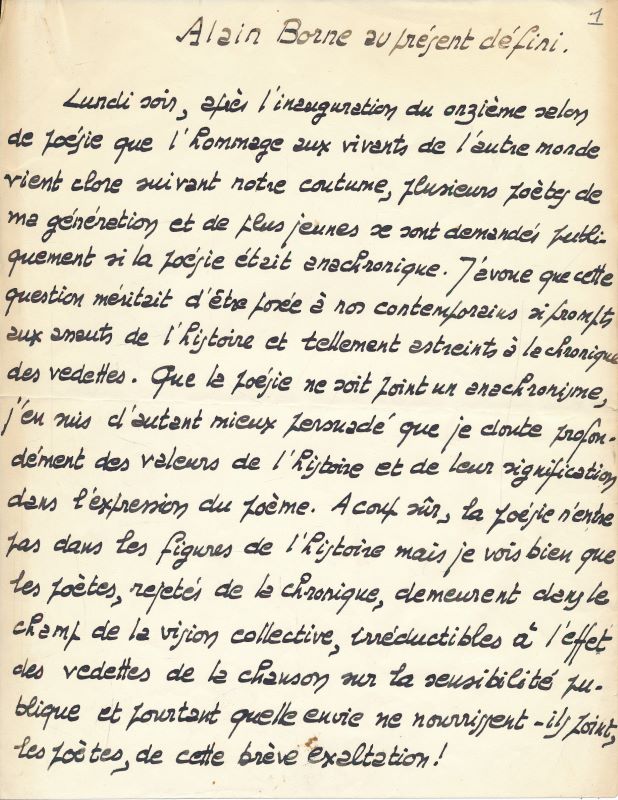 1
Alain Borne au présent défini.
Lundi soir, après l'inauguration du onzième salon
de poésie que l'hommage aux vivants de l'autre monde
vient clore suivant notre coutume, plusieurs poètes de
ma génération et de plus jeunes se sont demandés publi-
quement si la poésie était anachronique. J'avoue que cette
question méritait d'être posée à nos contemporains si prompts
aux assauts de l'histoire et tellement astreints à la chronique
des vedettes. Que la poésie ne soit point un anachronisme,
j'en suis d'autant mieux persuadé que je doute profon-
dément des valeurs de l'histoire et de leur signification
dans l'expression du poème. A coup sûr, la poésie n'entre
pas dans les figures de l'histoire mais je vois bien que
les poètes, rejetés de la chronique, demeurent dans le
champ de la vision collective, irréductibles à l'effet
des vedettes de la chanson sur la sensibilité pu-
blique et pourtant quelle envie ne nourrissent-ils point,
les poètes, de cette brève exaltation!